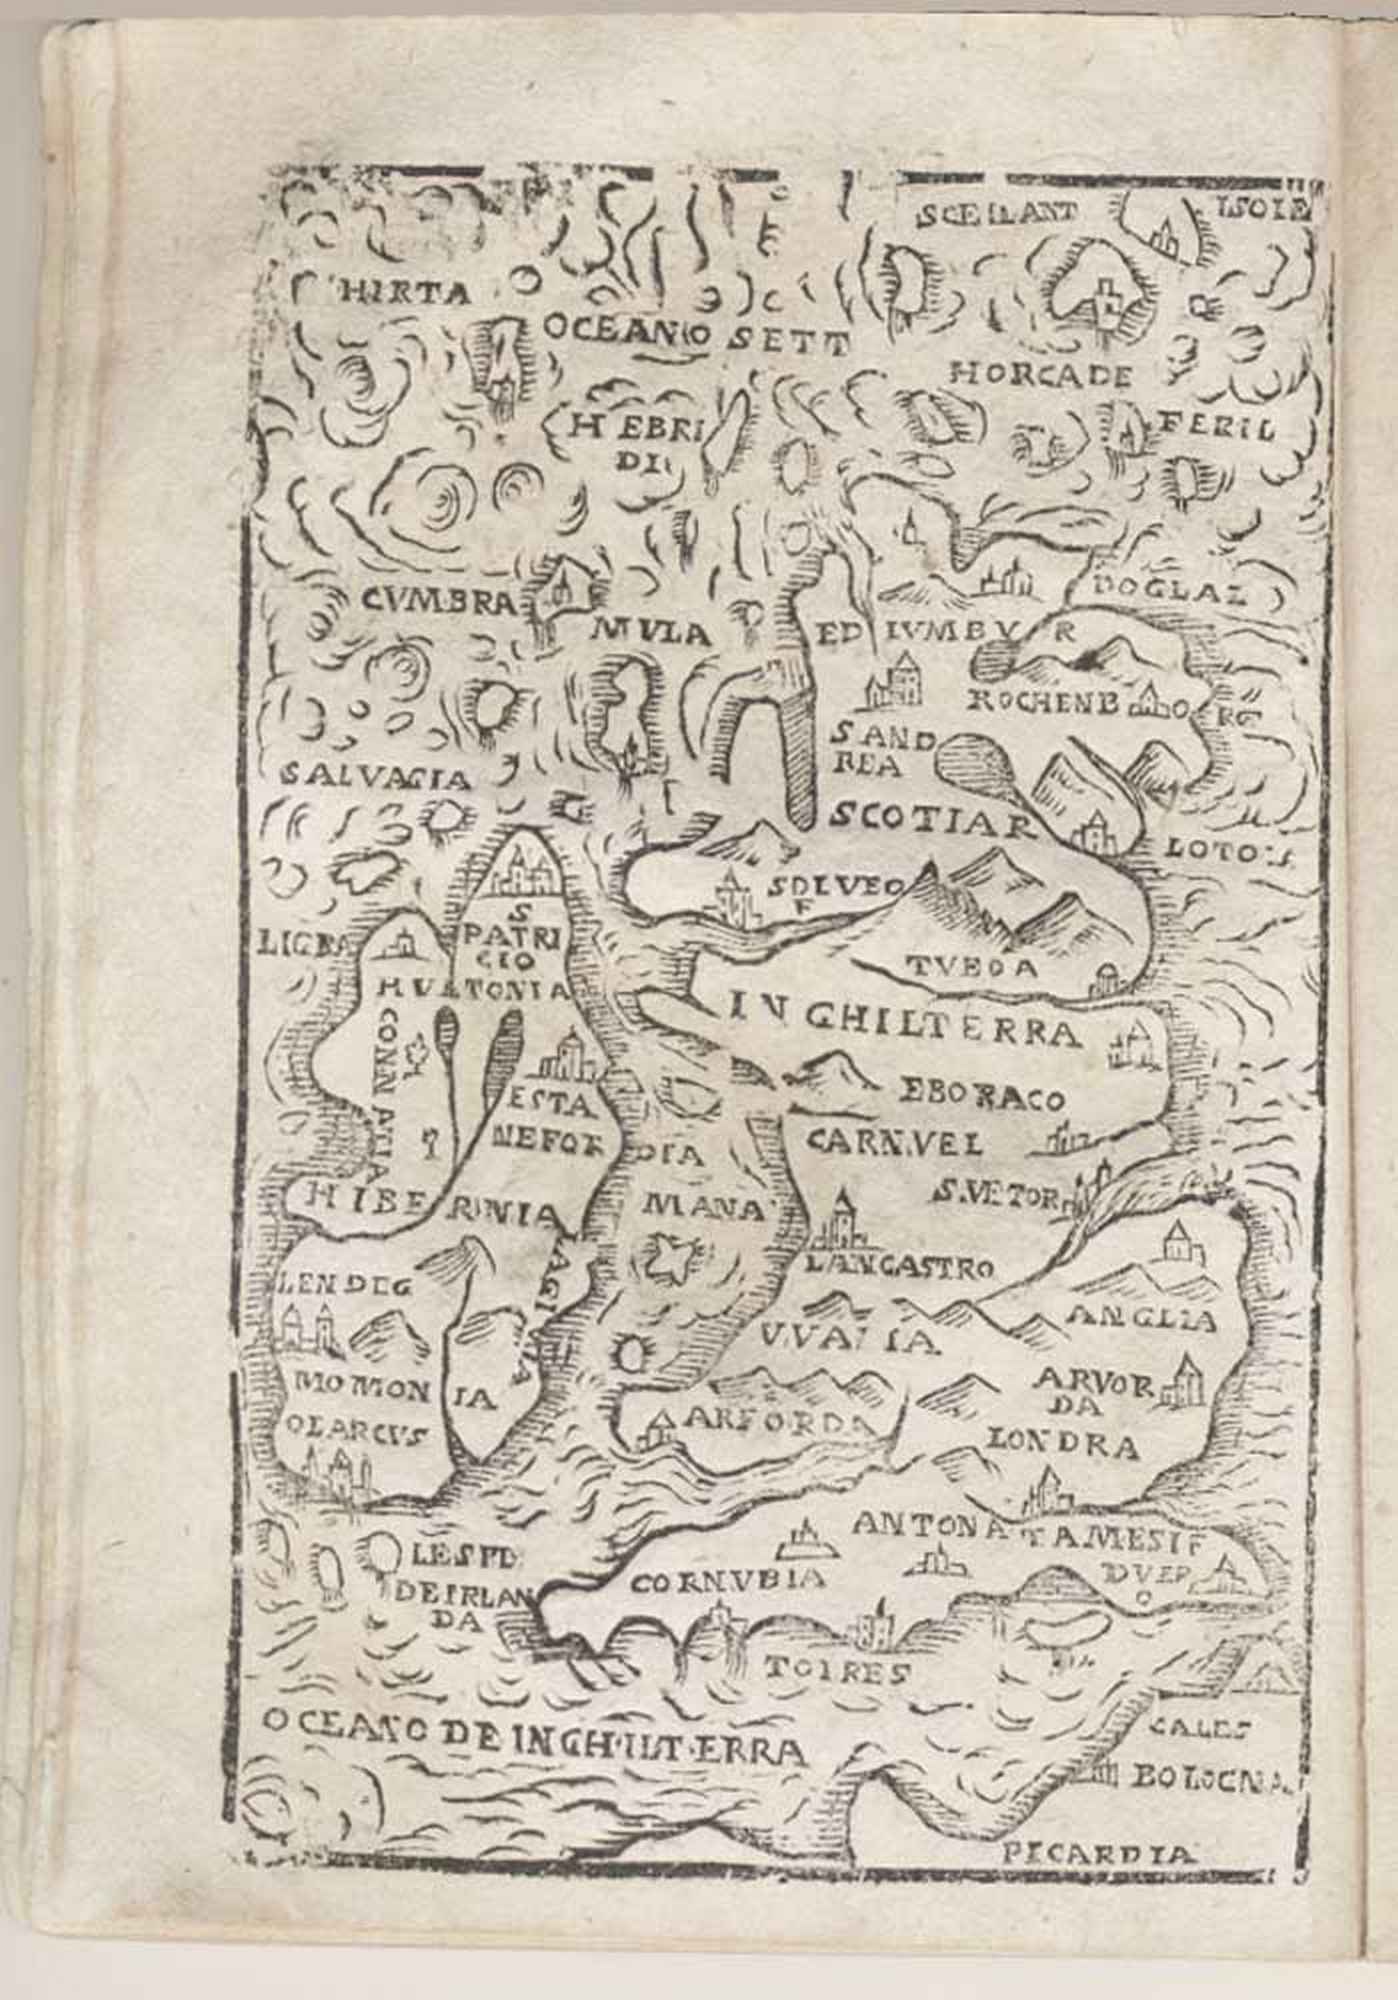 SCEILANT ISOLE
HIRTA
OCEANO SETT
HORCADE
HEBRI
DI
FERIL
CVMBRA
MULA
DOGLAZ
EDIVMBVR
ROCHENBORG
SAND
REA
SALVAGIA
SCOTIAR
LOTOIS
SOLVEO
F
S
PATRI
CIO
TVEDA
HVLTONIA
INGHILTERRA
CONNATIA
ESTA
NEFOR DIA
EBORACO
CARNVEL
HIBERNIA
MANA
S.VETOR
LANCASTRO
LENDEG
LAGINIA
ANGLIA
VVALIA
MOMONIA
ARVOR
DA
OLARCVS
ARFORDA
LONDRA
ANTONA
TAMESIF
LESPD
DEIRLAN
DA
CORNVBIA
DVER
O
TOIRES
OCEANO DE INGHILTERRA
CALES
BOLOGNA
PICARDIA